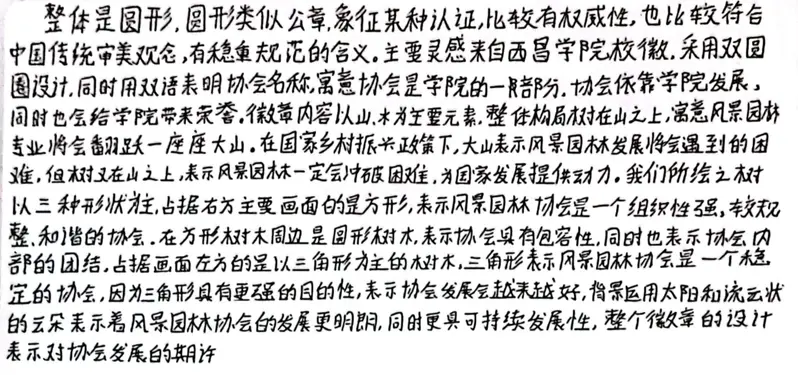 整体是圆形，圆形类似公章，象征某种认证，比较有权威性，也比较符合
中国传统审美观念，有稳重规范的含义。主要灵感来自西昌学院校徽。采用双圆
圈设计，同时用双语表明协会名称，寓意协会是学院的一部分，协会依靠学院发展，
同时也会给学院带来荣誉。徽章内容以山，木为主要元素，整体构局树在山之上，寓意风景园林
专业将会翻跃一座座大山。在国家乡村振兴政策下，大山表示风景园林发展将会遇到的困
难，但树又在山之上，表示风景园林一定会冲破困难，为国家发展提供动力。我们所绘之树
以三种形状为主，占据右方主要画面的是方形，表示风景园林协会是一个组织性强，较规
整，和谐的协会。在方形树木周边是圆形树木，表示协会具有包容性，同时也表示协会内
部的团结，占据画面左方的是以三角形为主的树木，三角形表示风景园林协会是一个稳
定的协会，因为三角形具有更强的目的性，表示协会发展会越来越好，背景运用太阳和流云状
的云朵表示着风景园林协会的发展更明朗，同时更具可持续发展性，整个徽章的设计
表示对协会发展的期许